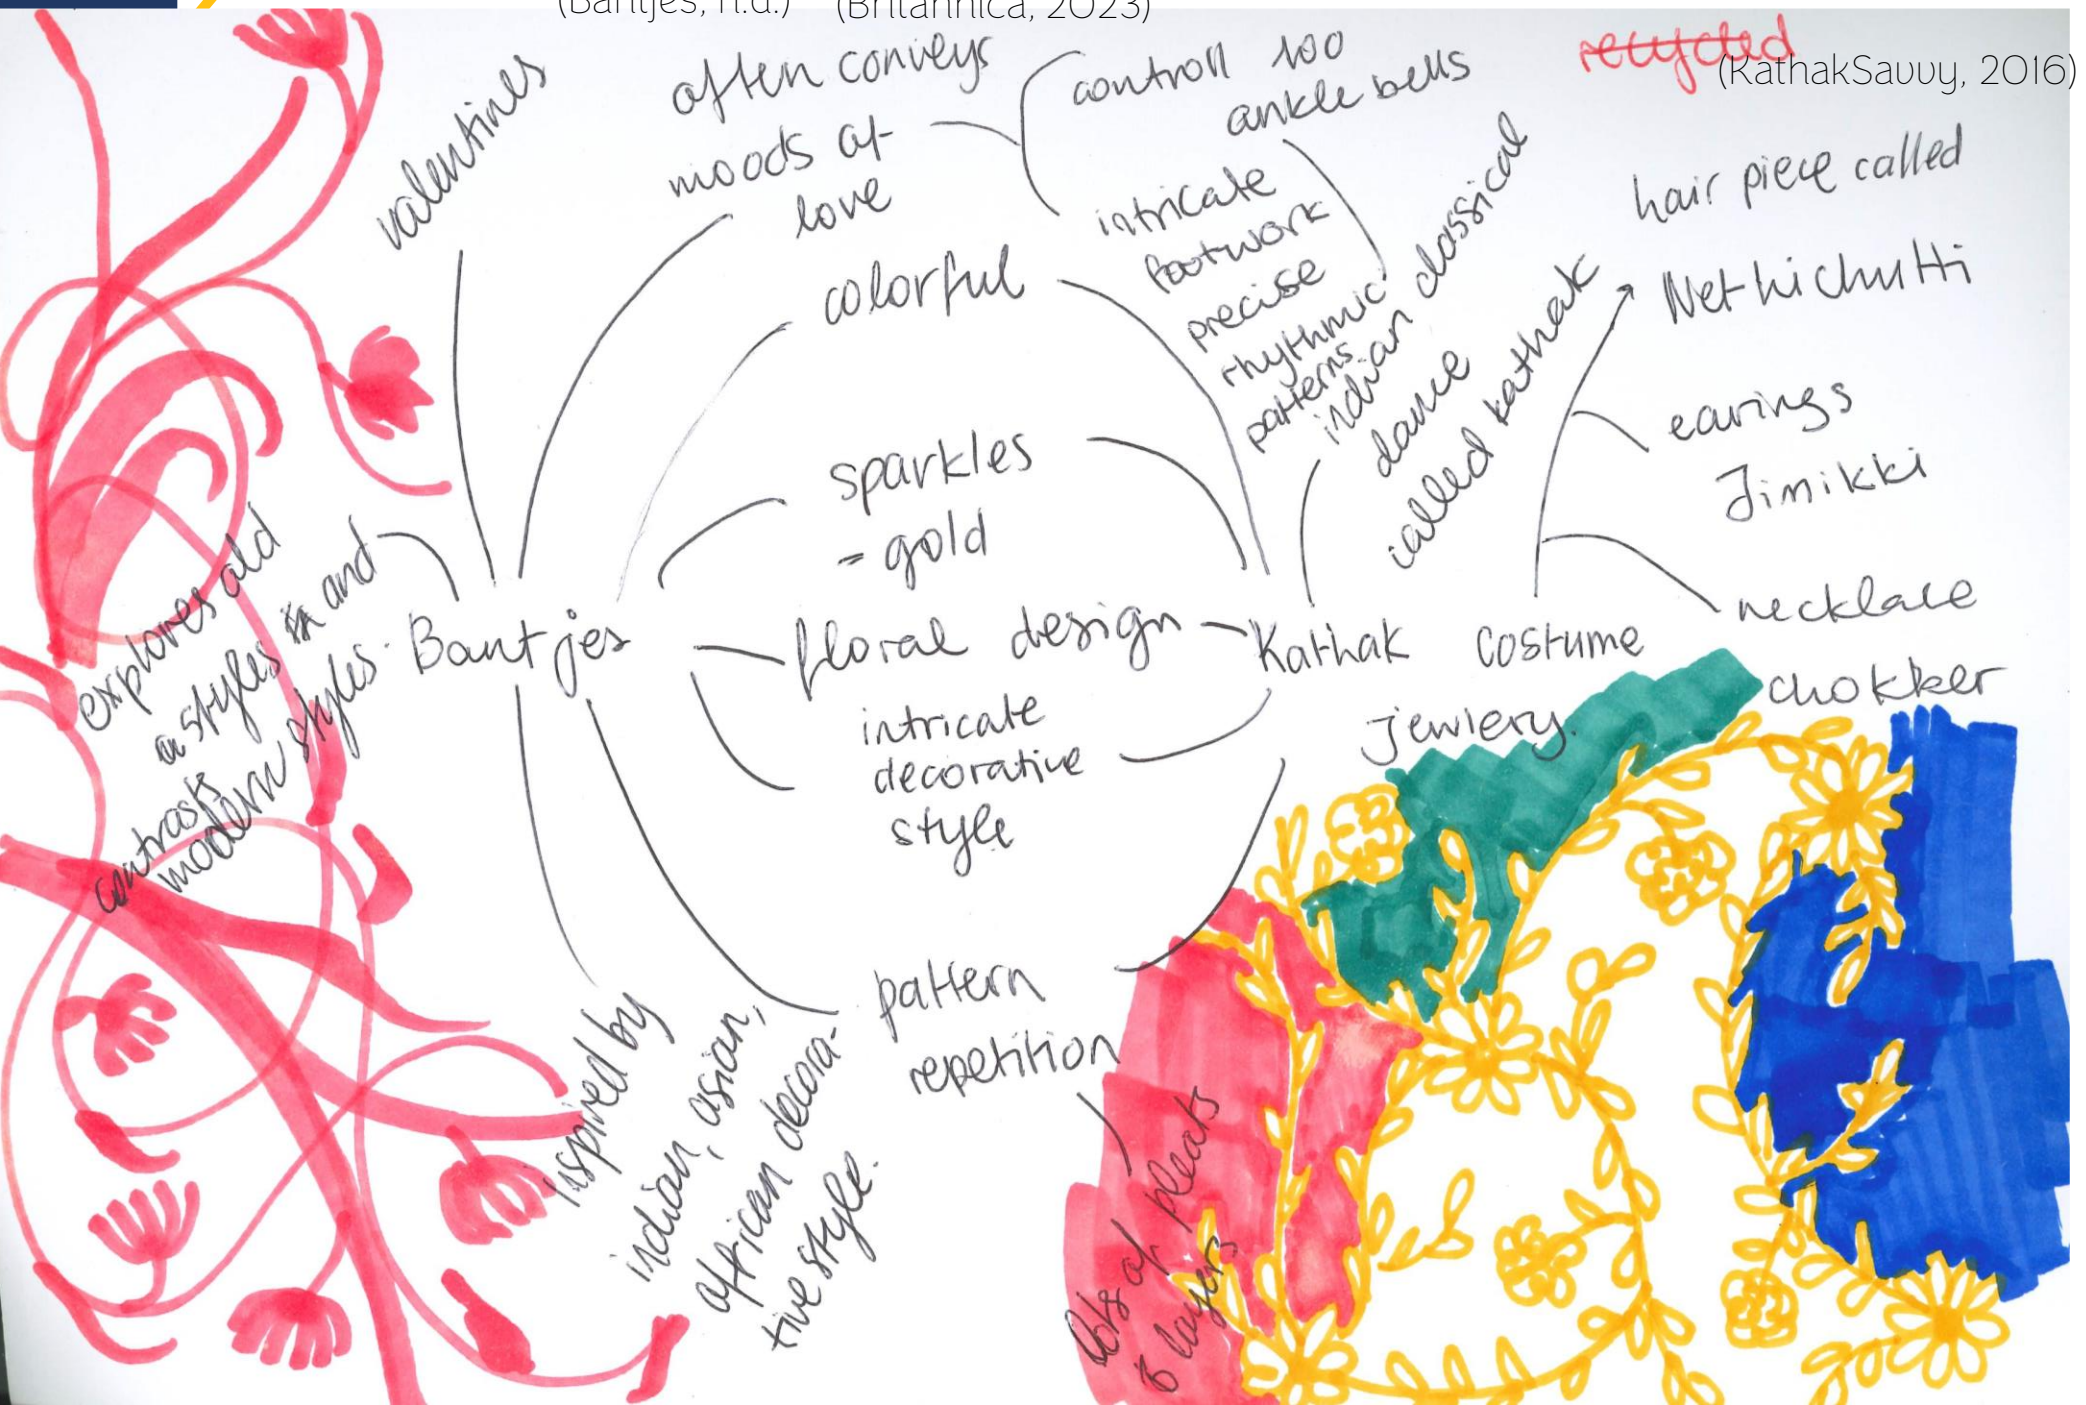 (Bantjes, n.d.)
(Britannica, 2023)
recycled
(KathakSavvy, 2016)
valentines
often conveys
moods of
love
controll 100
ankle bells
intricate
footwork
precise
rhythmic
patterns
indian classical
dance
called kathak
hair piece called
Nethichutti
earings
Jimikki
necklace
chokker
colorful
sparkles
- gold
floral design
intricate
decorative
style
pattern
repetition
Bantjes
Kathak Costume
jewlery.
explores old
styles and
contrasts
modern styles.
inspired by
indian, asian,
african decora-
tive style.
lots of pleats
& layers